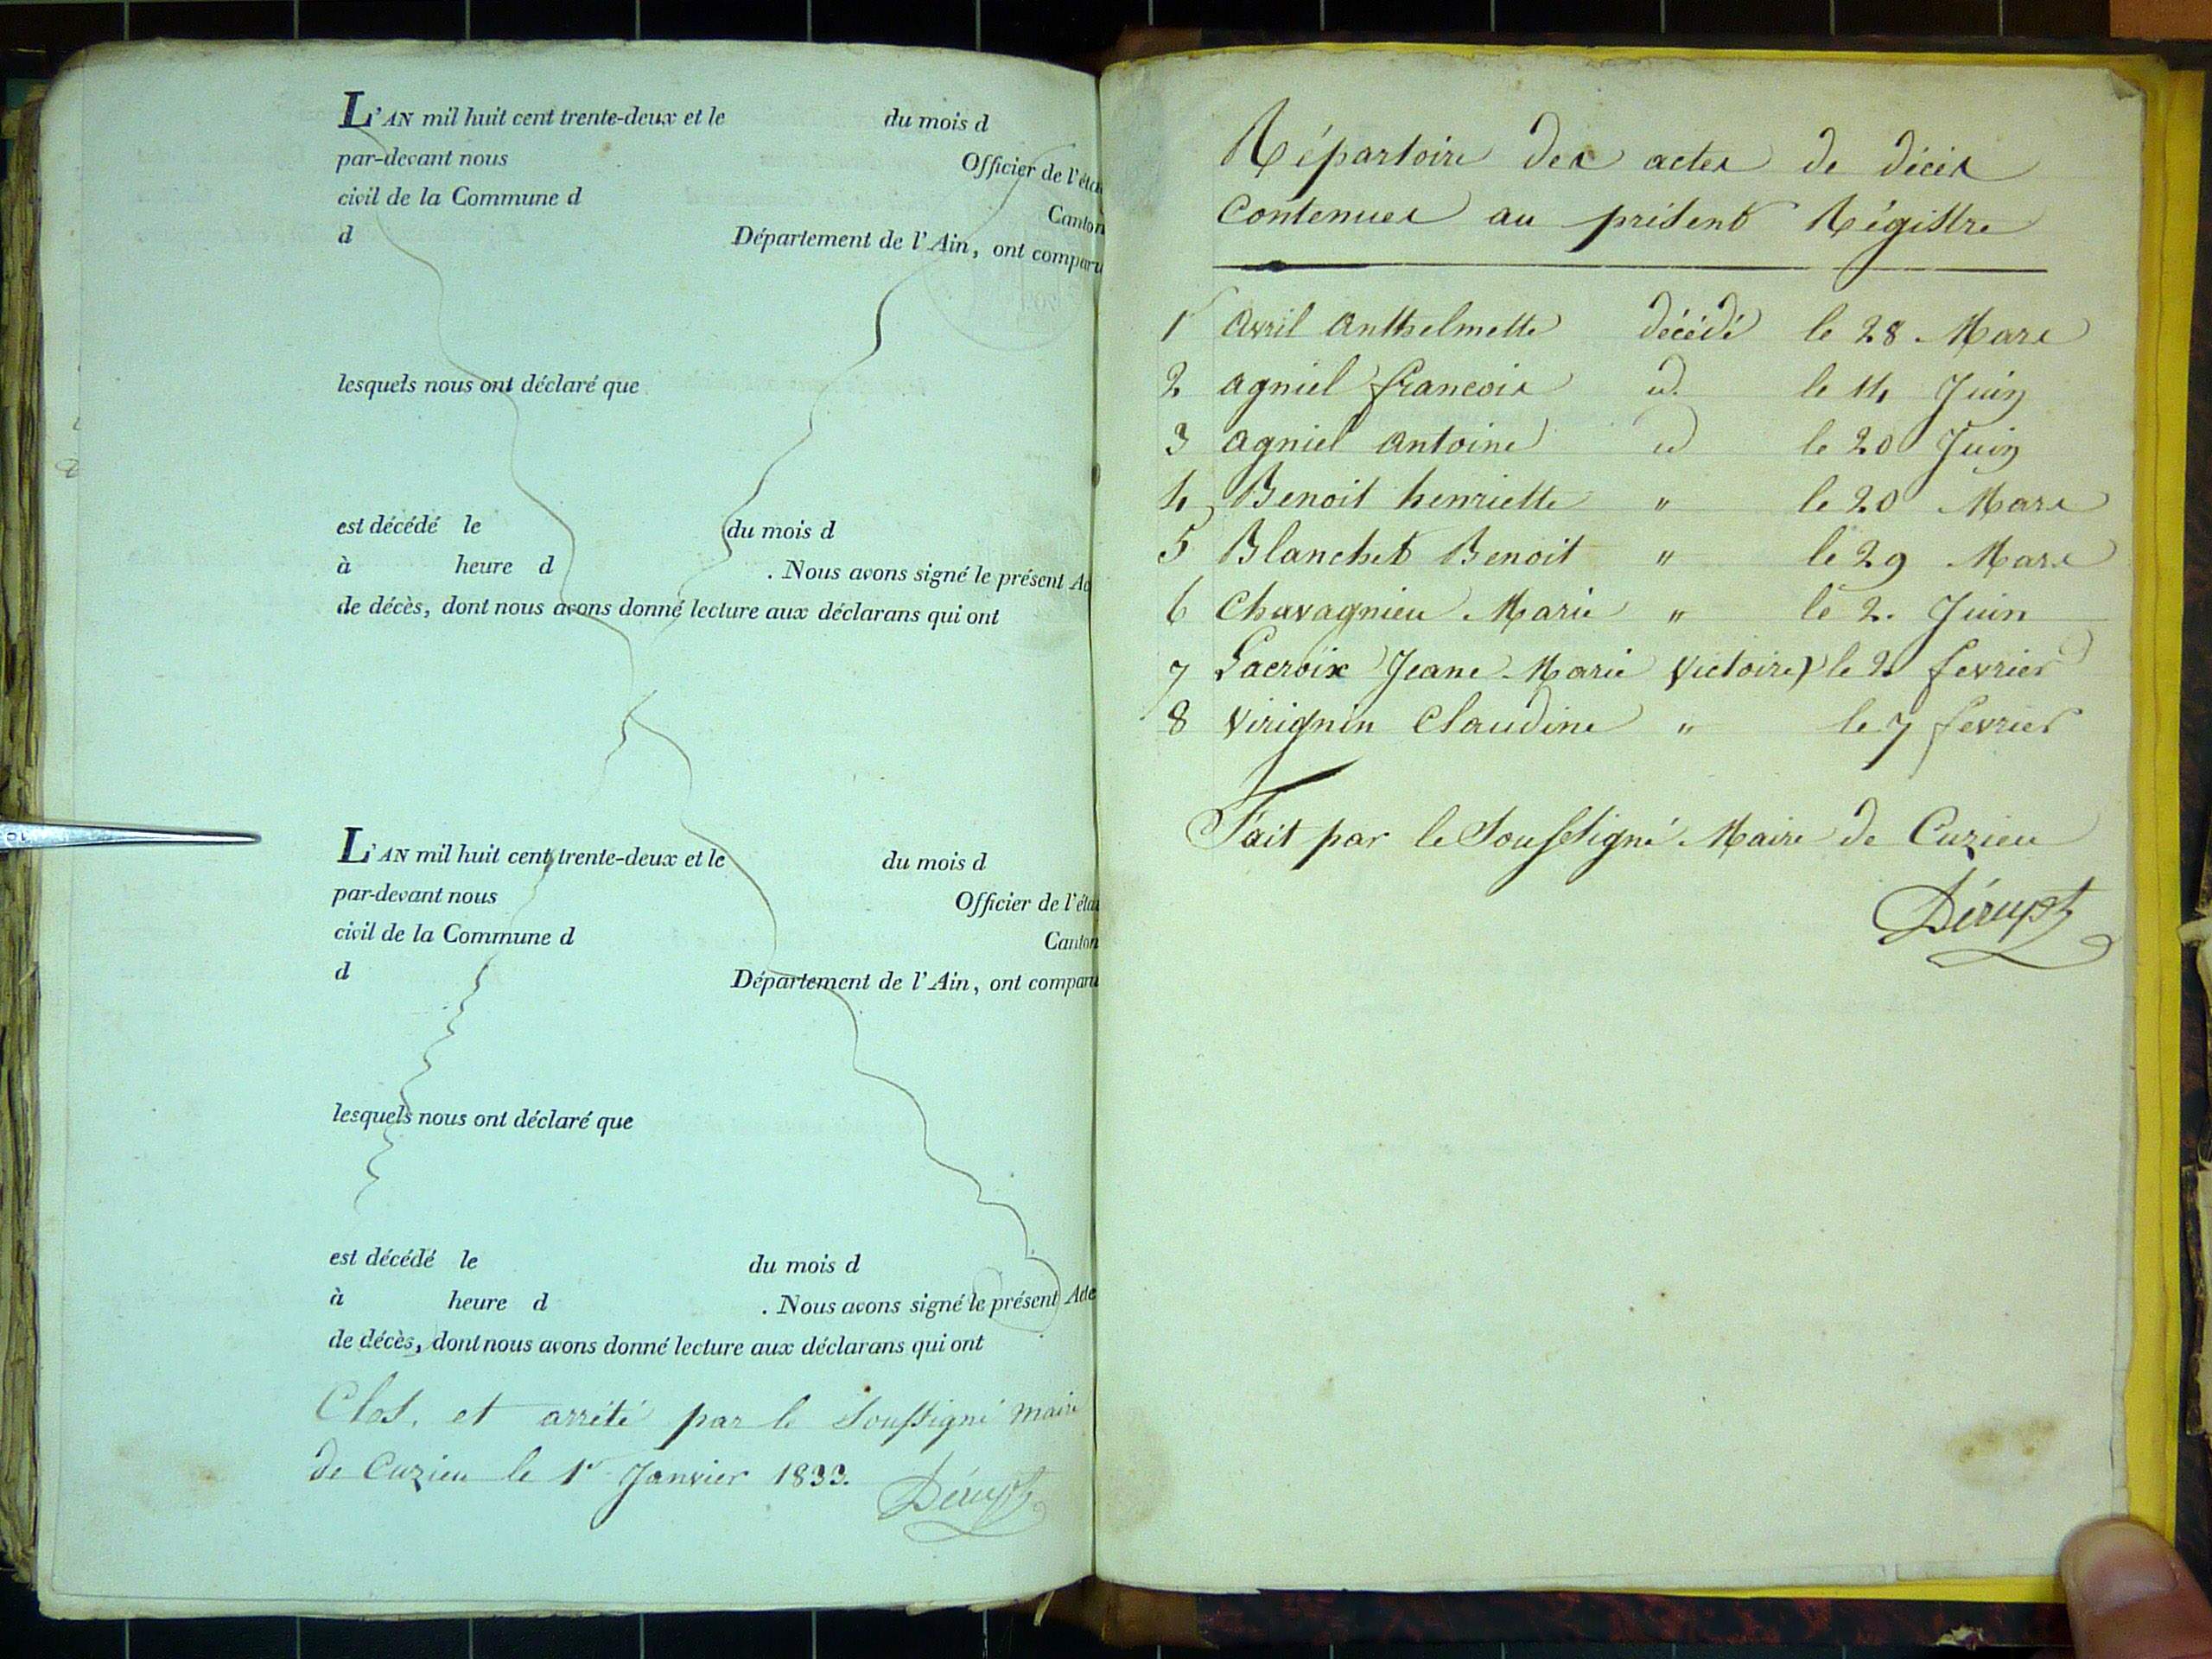 L'AN mil huit cent trente-deux et le du mois d
par-devant nous Officier de l'éta
civil de la Commune d Canton
d Département de l'Ain, ont comparu
lesquels nous ont déclaré que
est décédé le du mois d
à heure d . Nous avons signé le présent Ac
de décès, dont nous avons donné lecture aux déclarans qui ont
L'AN mil huit cent trente-deux et le du mois d
par-devant nous Officier de l'éta
civil de la Commune d Canton
d Département de l'Ain, ont comparu
lesquels nous ont déclaré que
est décédé le du mois d
à heure d . Nous avons signé le présent Acte
de décès, dont nous avons donné lecture aux déclarans qui ont
Clos, et arrété par le Soussigné maire
de Cuzieu le 1er Janvier 1833.
Répartoire des actes de décès
Contenues au présent Régistre
1 Avril Anthelmette décédé le 28 Mars
2 Agniel francois id. le 14 Juin
3 Agniel Antoine id le 20 Juin
4 Benoit henriette " le 20 Mars
5 Blanchet Benoit " le 29 Mars
6 Chavagnieu Marie " le 2. Juin
7 Lacroix Jeane Marie Victoire le 2 fevrier
8 Virignin Claudine " le 7 fevrier
Fait par le Soussigné Maire de Cuzieu